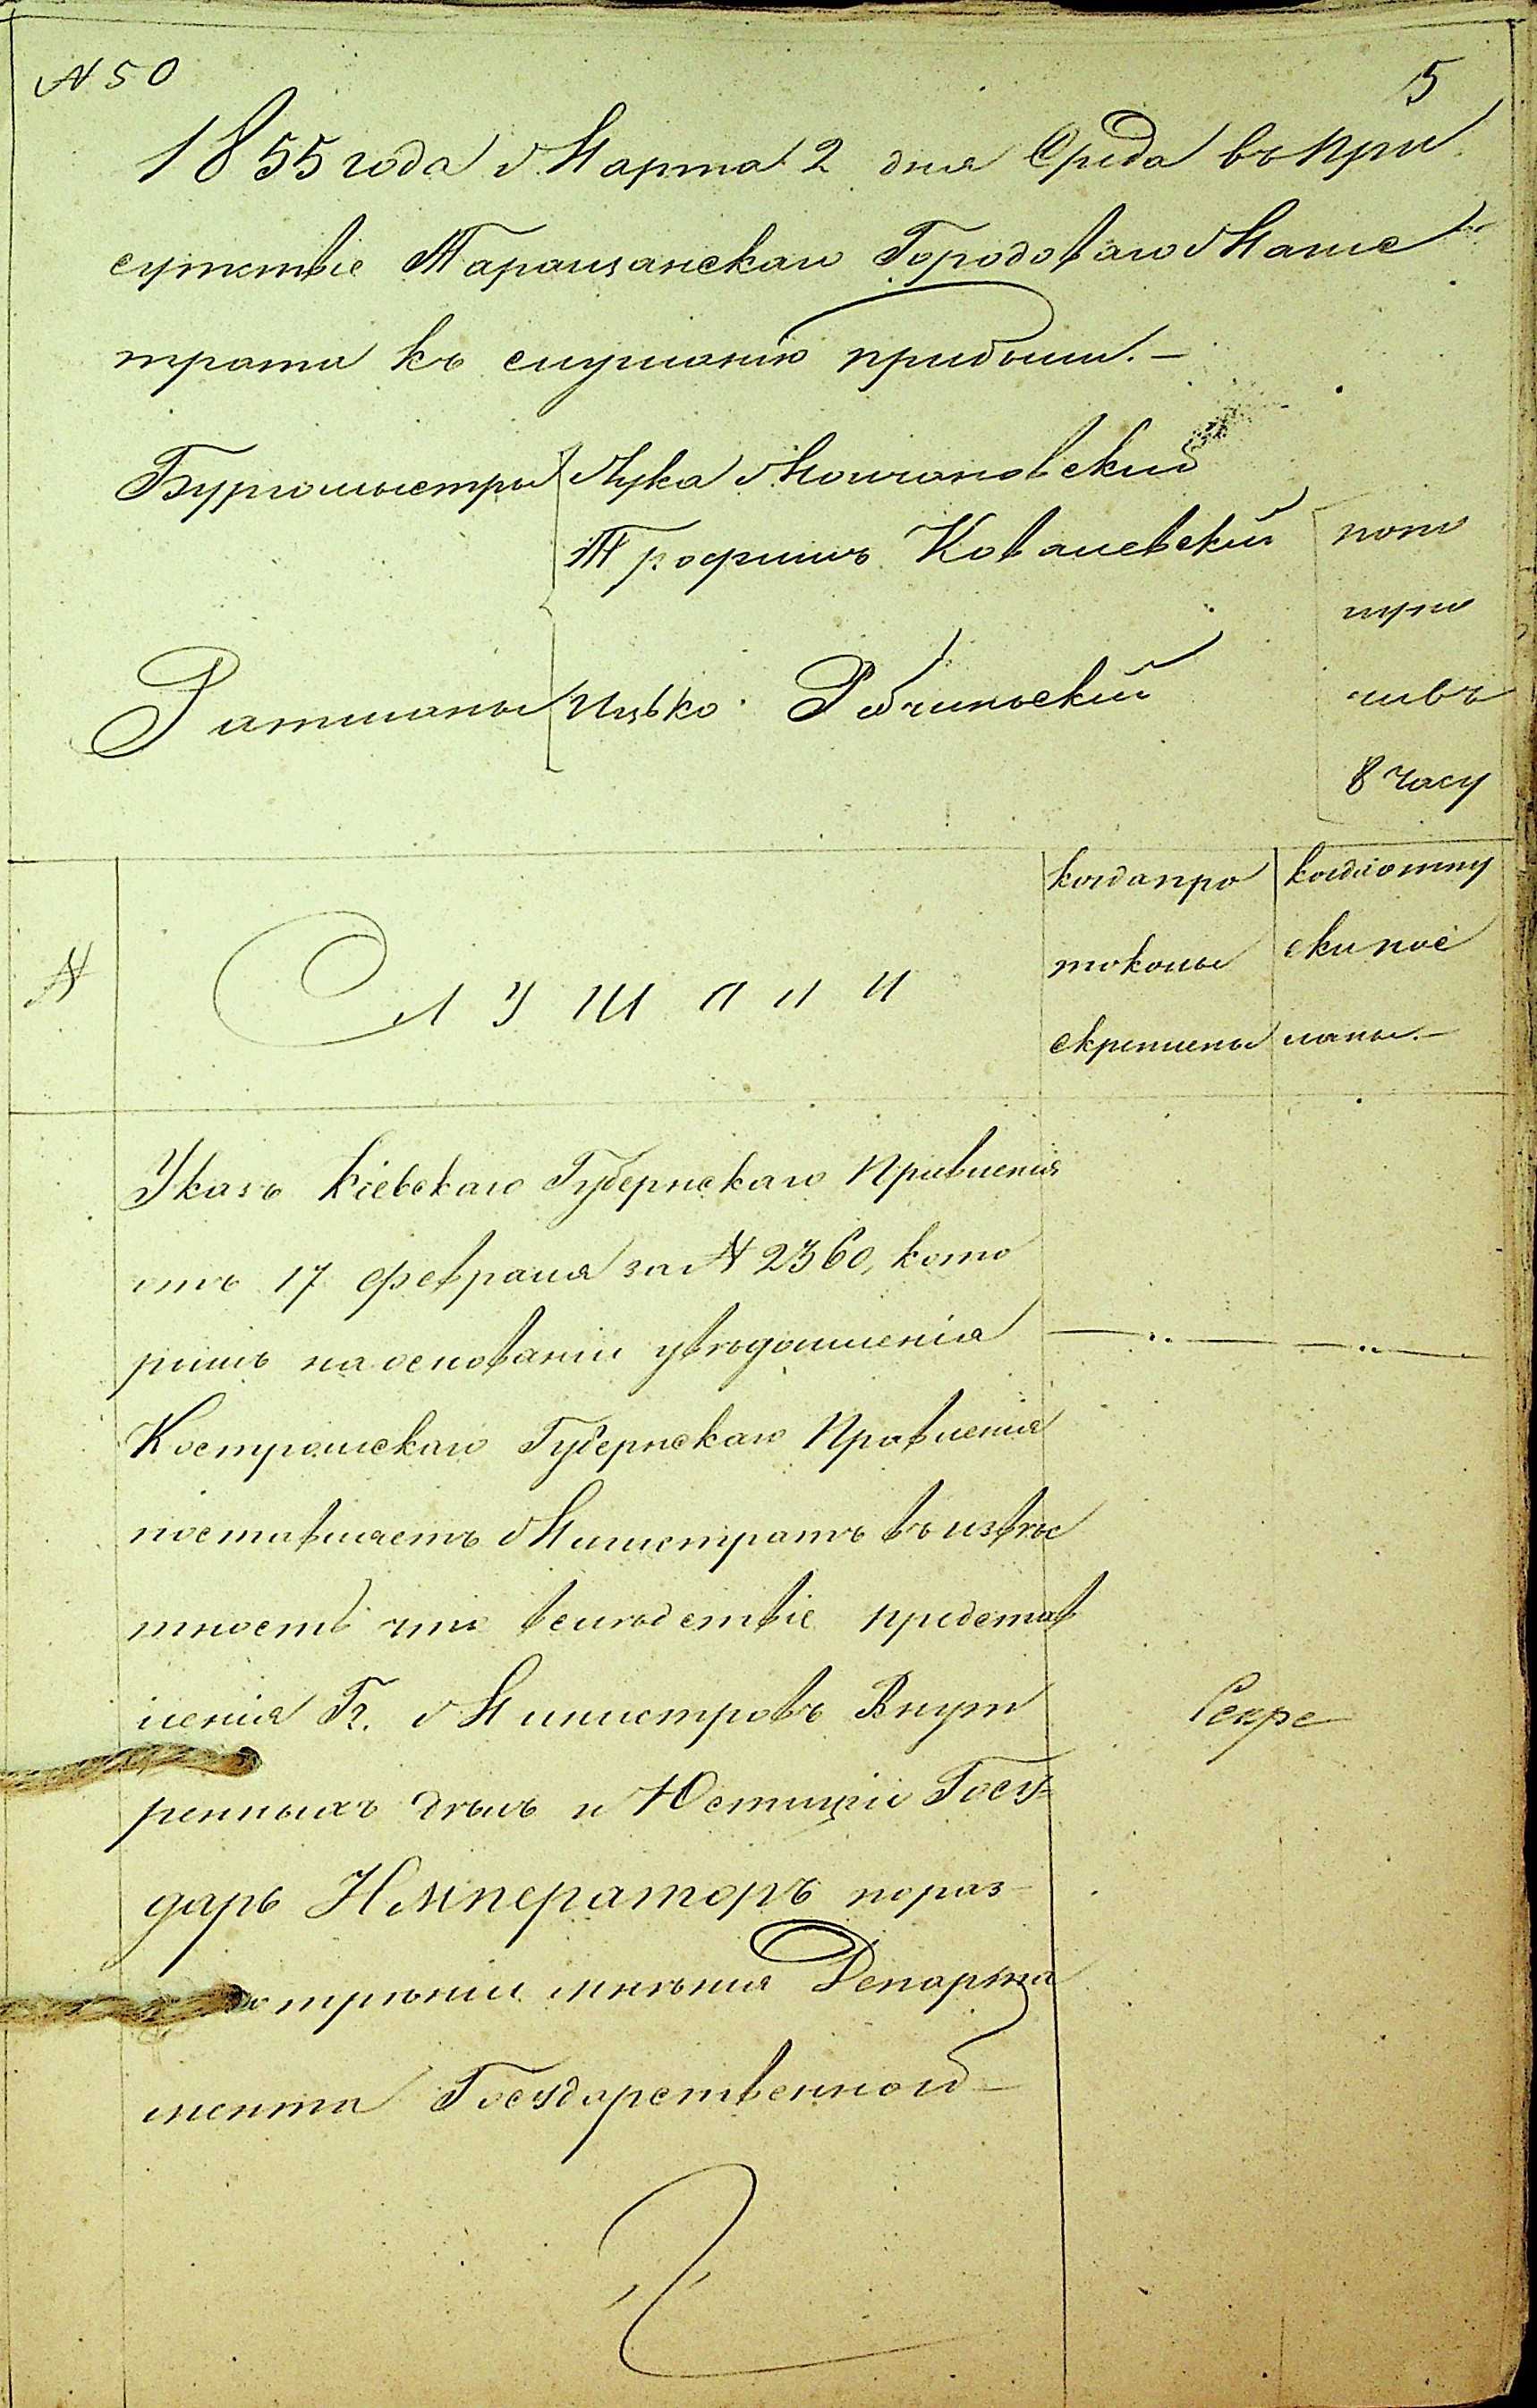 № 50
5
1855 года Марта 2 дня Среда въ при
сутствіе Таращанскаго Городоваго Магис
трата къ слушанію прибыли.—
Бургомыстры Лука Мончановскій
Трофимъ Ковалевскій
Ратманы Ицько
попо
луно
чивъ
8 часу
№
Слушали
когда про
токолы
скреплены
когда отпу
ски пос
ланы.—
Указъ Кіевскаго Губернскаго Правленія
отъ 17 февраля за № 2360, кото
рымъ на основаніи увѣдомленія
Костромскаго Губернскаго Правленія
поставляетъ Магистратъ въ извѣс
тность что вслѣдствіе представ
ленія Гг. Министровъ Внут
реннихъ дѣлъ и Юстиціи Госу=
дарь Императоръ по раз-
смотрѣніи мнѣнія Департа
мента Государственной-
Секре